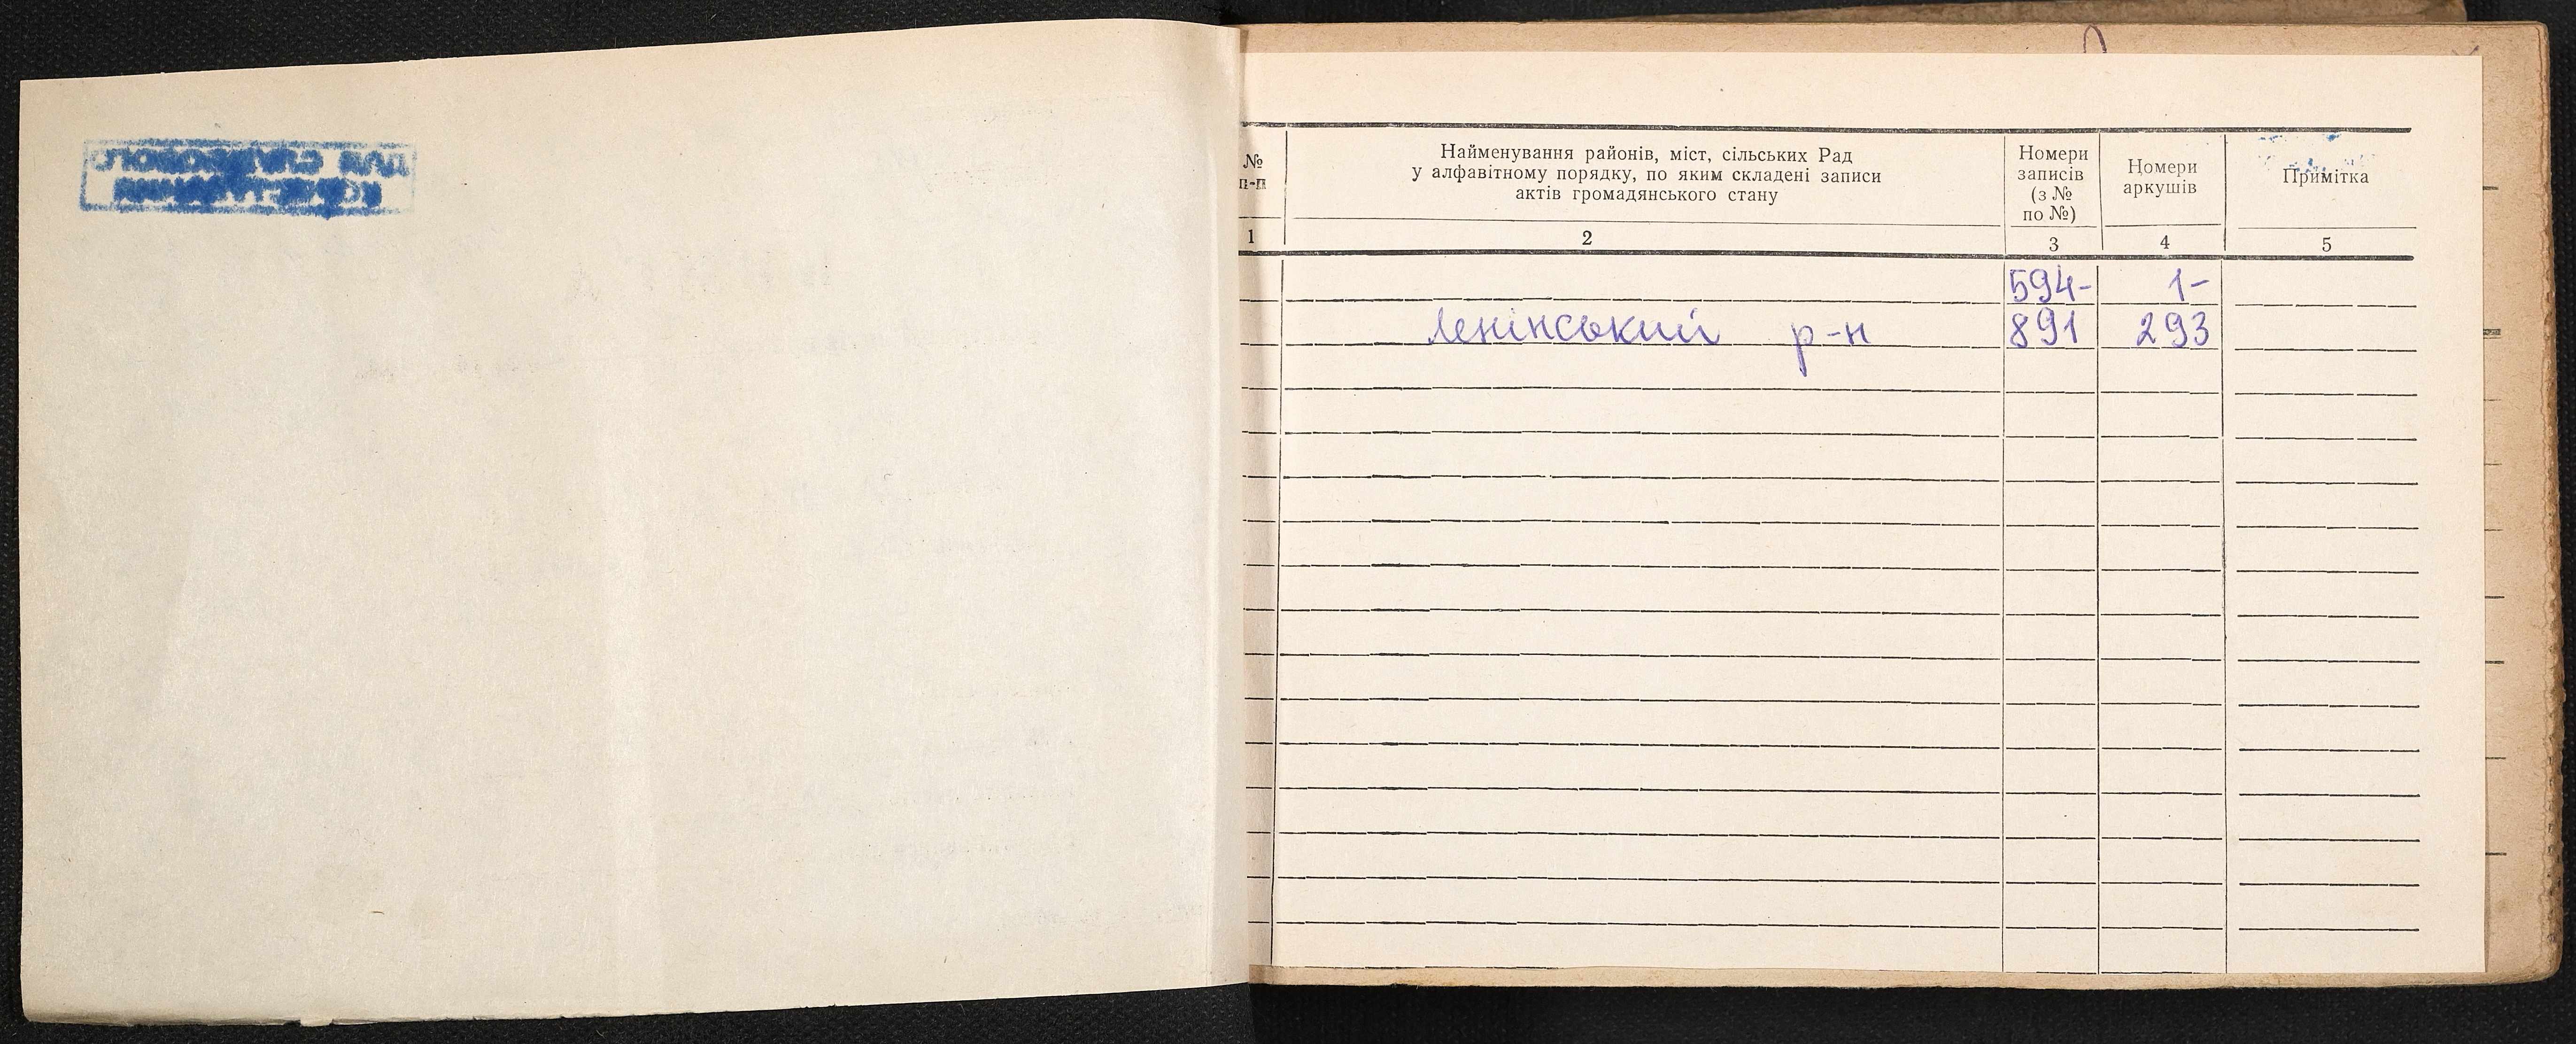 №
п-п
Найменування районів, міст, сільських Рад
у алфавітному порядку, по яким складені записи
актів громадянського стану
Номери
записів
(з №
по №)
Номери
аркушів
Примітка
1
2
3
4
5
594- 1-
Ленінський р-н 891 293